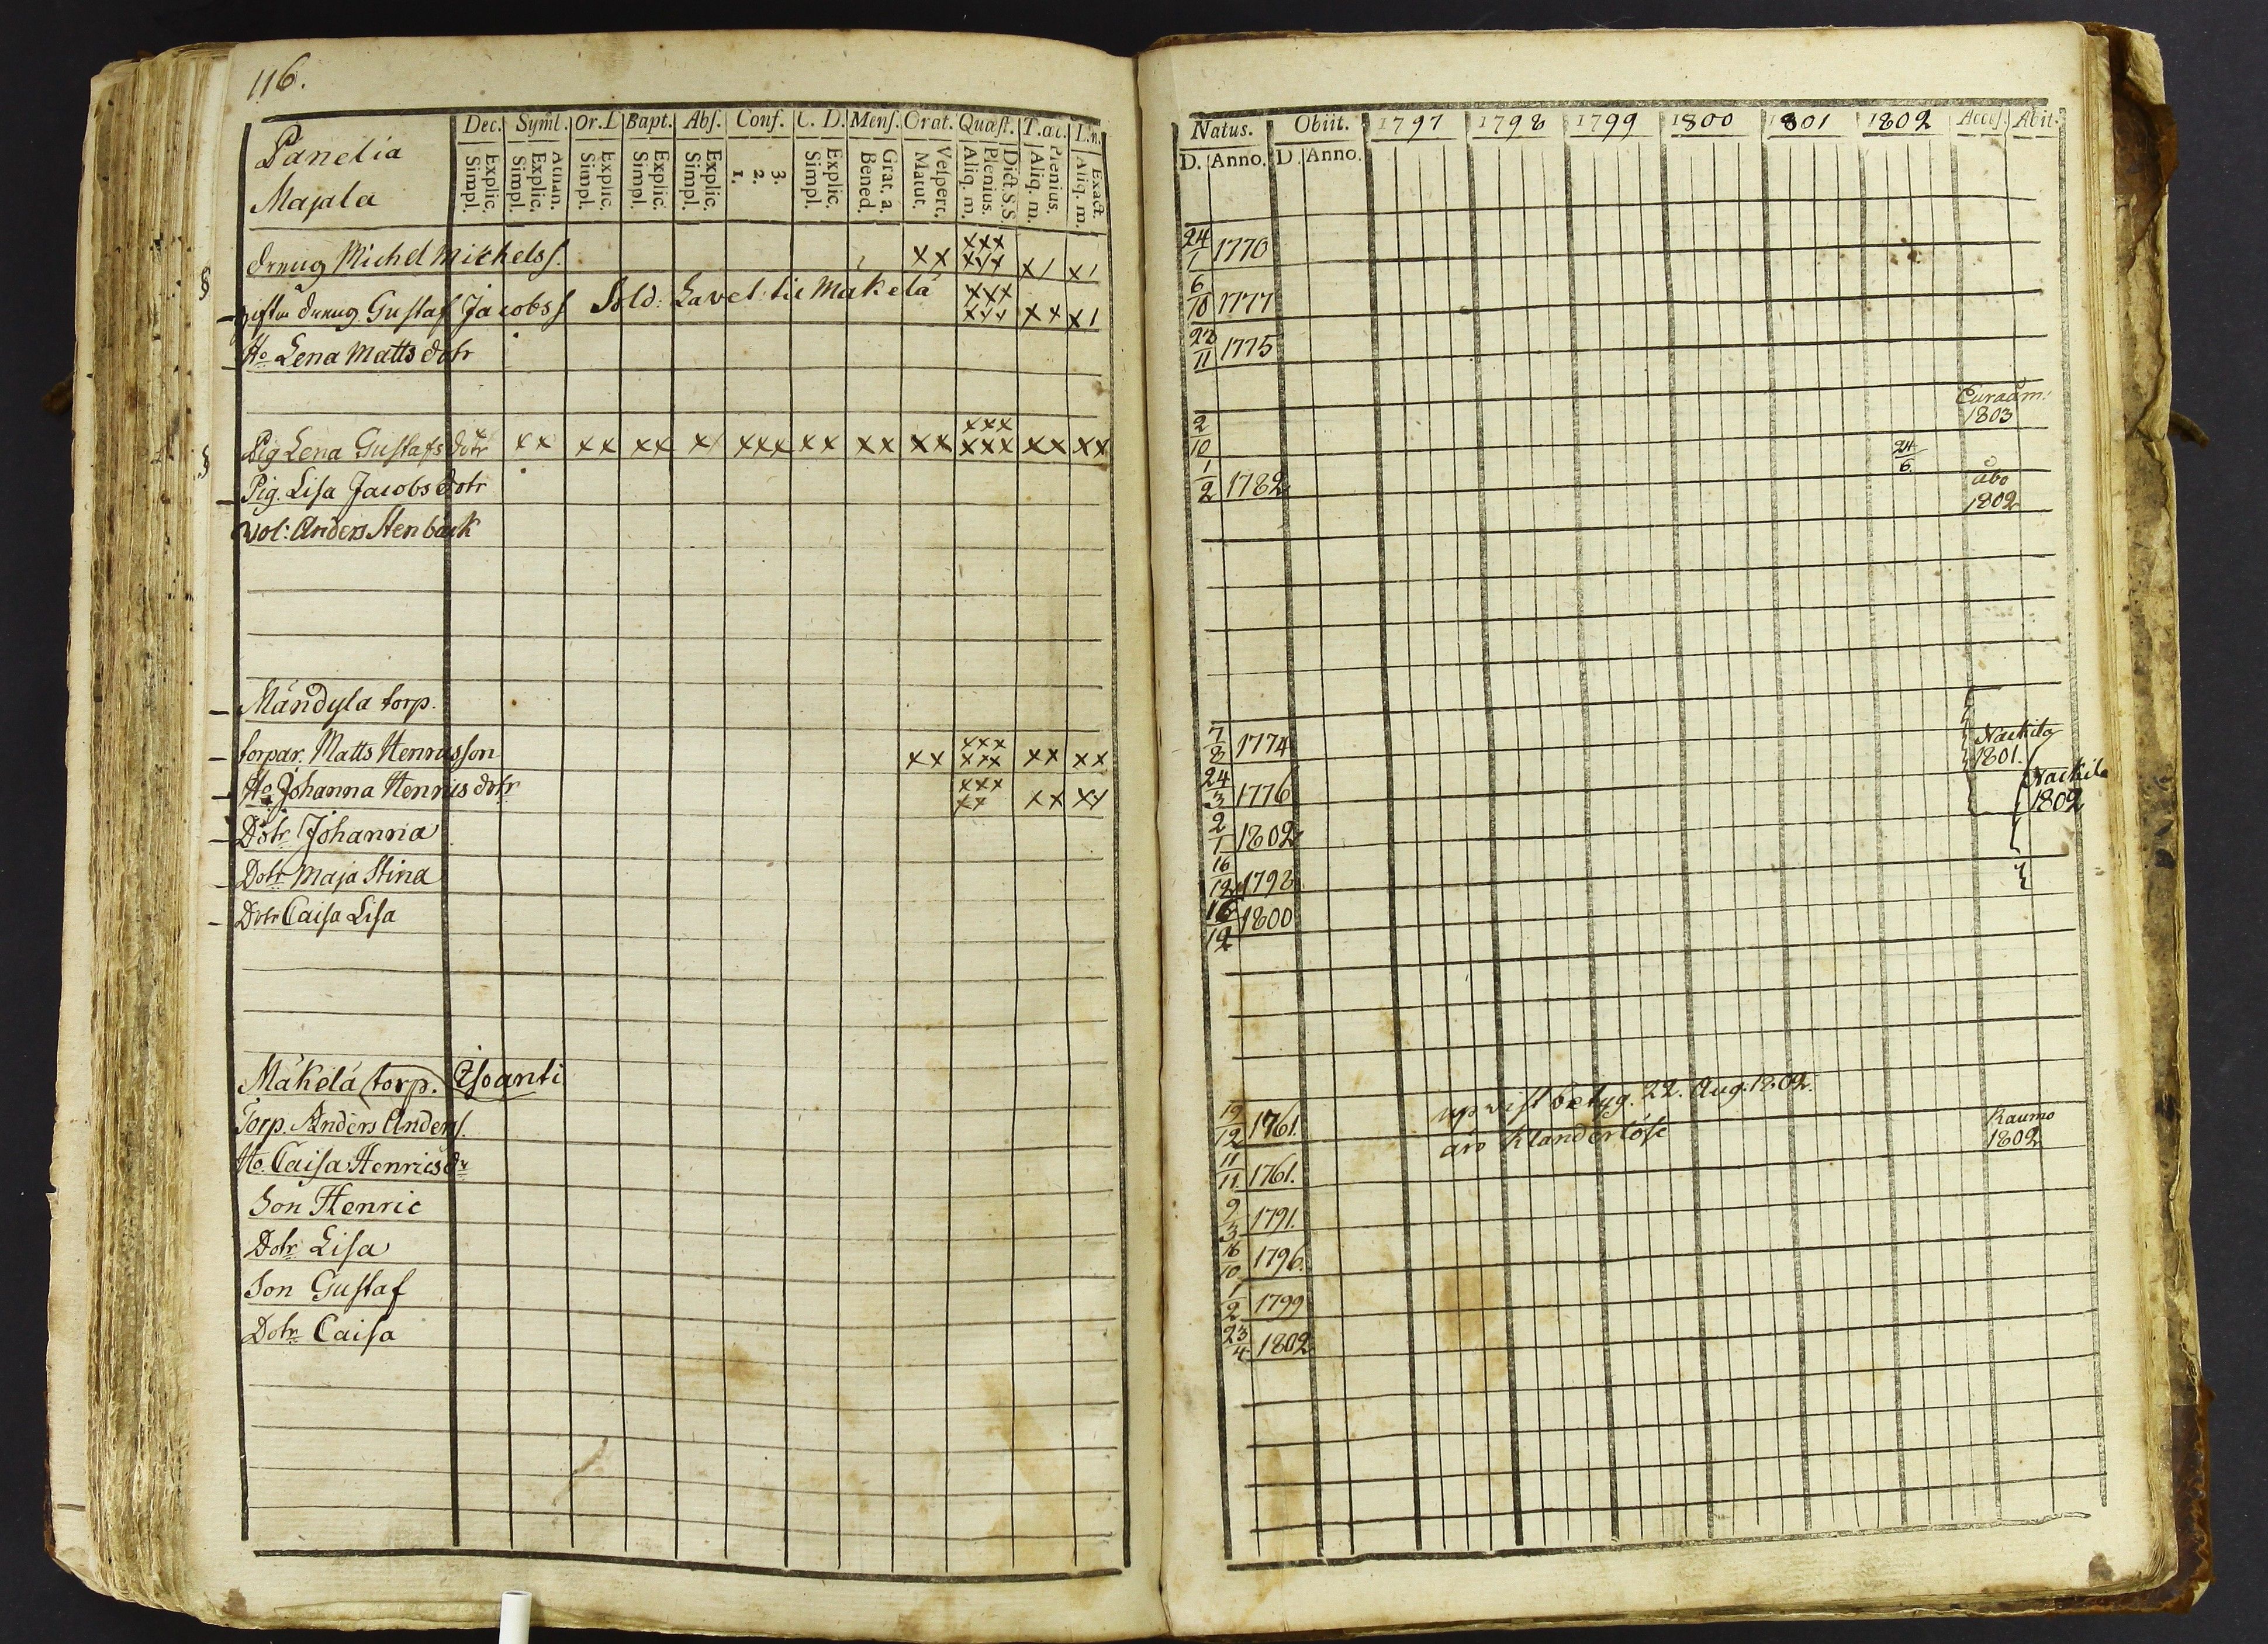 116.
Panelia
Majala
Dec. Symb. Or. D Bapt. Abſ. Conf. C. D. Menſ. Orat. Quæſt. T. œc. L. n.
Explic. Simpl. Athan. Explic. Simpl. Explic. Simpl. Explic. Simpl. Explic. Simpl. 3. 2. 1. Explic. Simpl. Grat. a. Bened. Veſpert. Matut. Dict. S. S. Plenius. Aliq. m. Plenius. Aliq. m. Exact. Aliq. m.
dreng Michel Mickelsſ. x x xxx xxx x / x /
gifta dreng Gustaf Jacobsſ Sold: Lavel: til Mäkelä xxx xxx x x x /
Ho Lena Matts dotr
Pig Lena Gustafs dotr x x x x x x x x x x x x x x x x x x x xxx xxx x x x x
Pig. Lisa Jacobs dotr
Vol: Anders Stenbäck
Mändylä torp.
torpar. Matts Henricsson x x xxx xxx x x x x
Ho Johanna Henrics dotr xxx xx x x x x
Dotr Johanna
Dotr Maja Stina
Dotr Caisa Lisa
Mäkelä torp. Isoanti
Torp. Anders Andersſ.
Ho. Caisa Henricsdr
Son Henric
Dotr Lisa
Son Gustaf
Dotr Caisa
Natus. Obiit. 1797 1798 1799 1800 1801 1802 Acceſ. Abit.
D. Anno. D. Anno.
24/1 1770
6/10 1777
22/11 1775
2/10 Euraåm. 1803
1/2 1782 24/6
Åbo 1802
7/8 1774 Nackila 1801.
24/3 1776 Nackila 1802
2/1 1802
16/12 1798
16/12 1800
upvist betyg. 22. Aug. 1802.
19/12 1761. äro klanderlöse Raumo 1802
11/11. 1761.
9/3 1791.
16/10 1796.
1/2 1799
23/4 1802